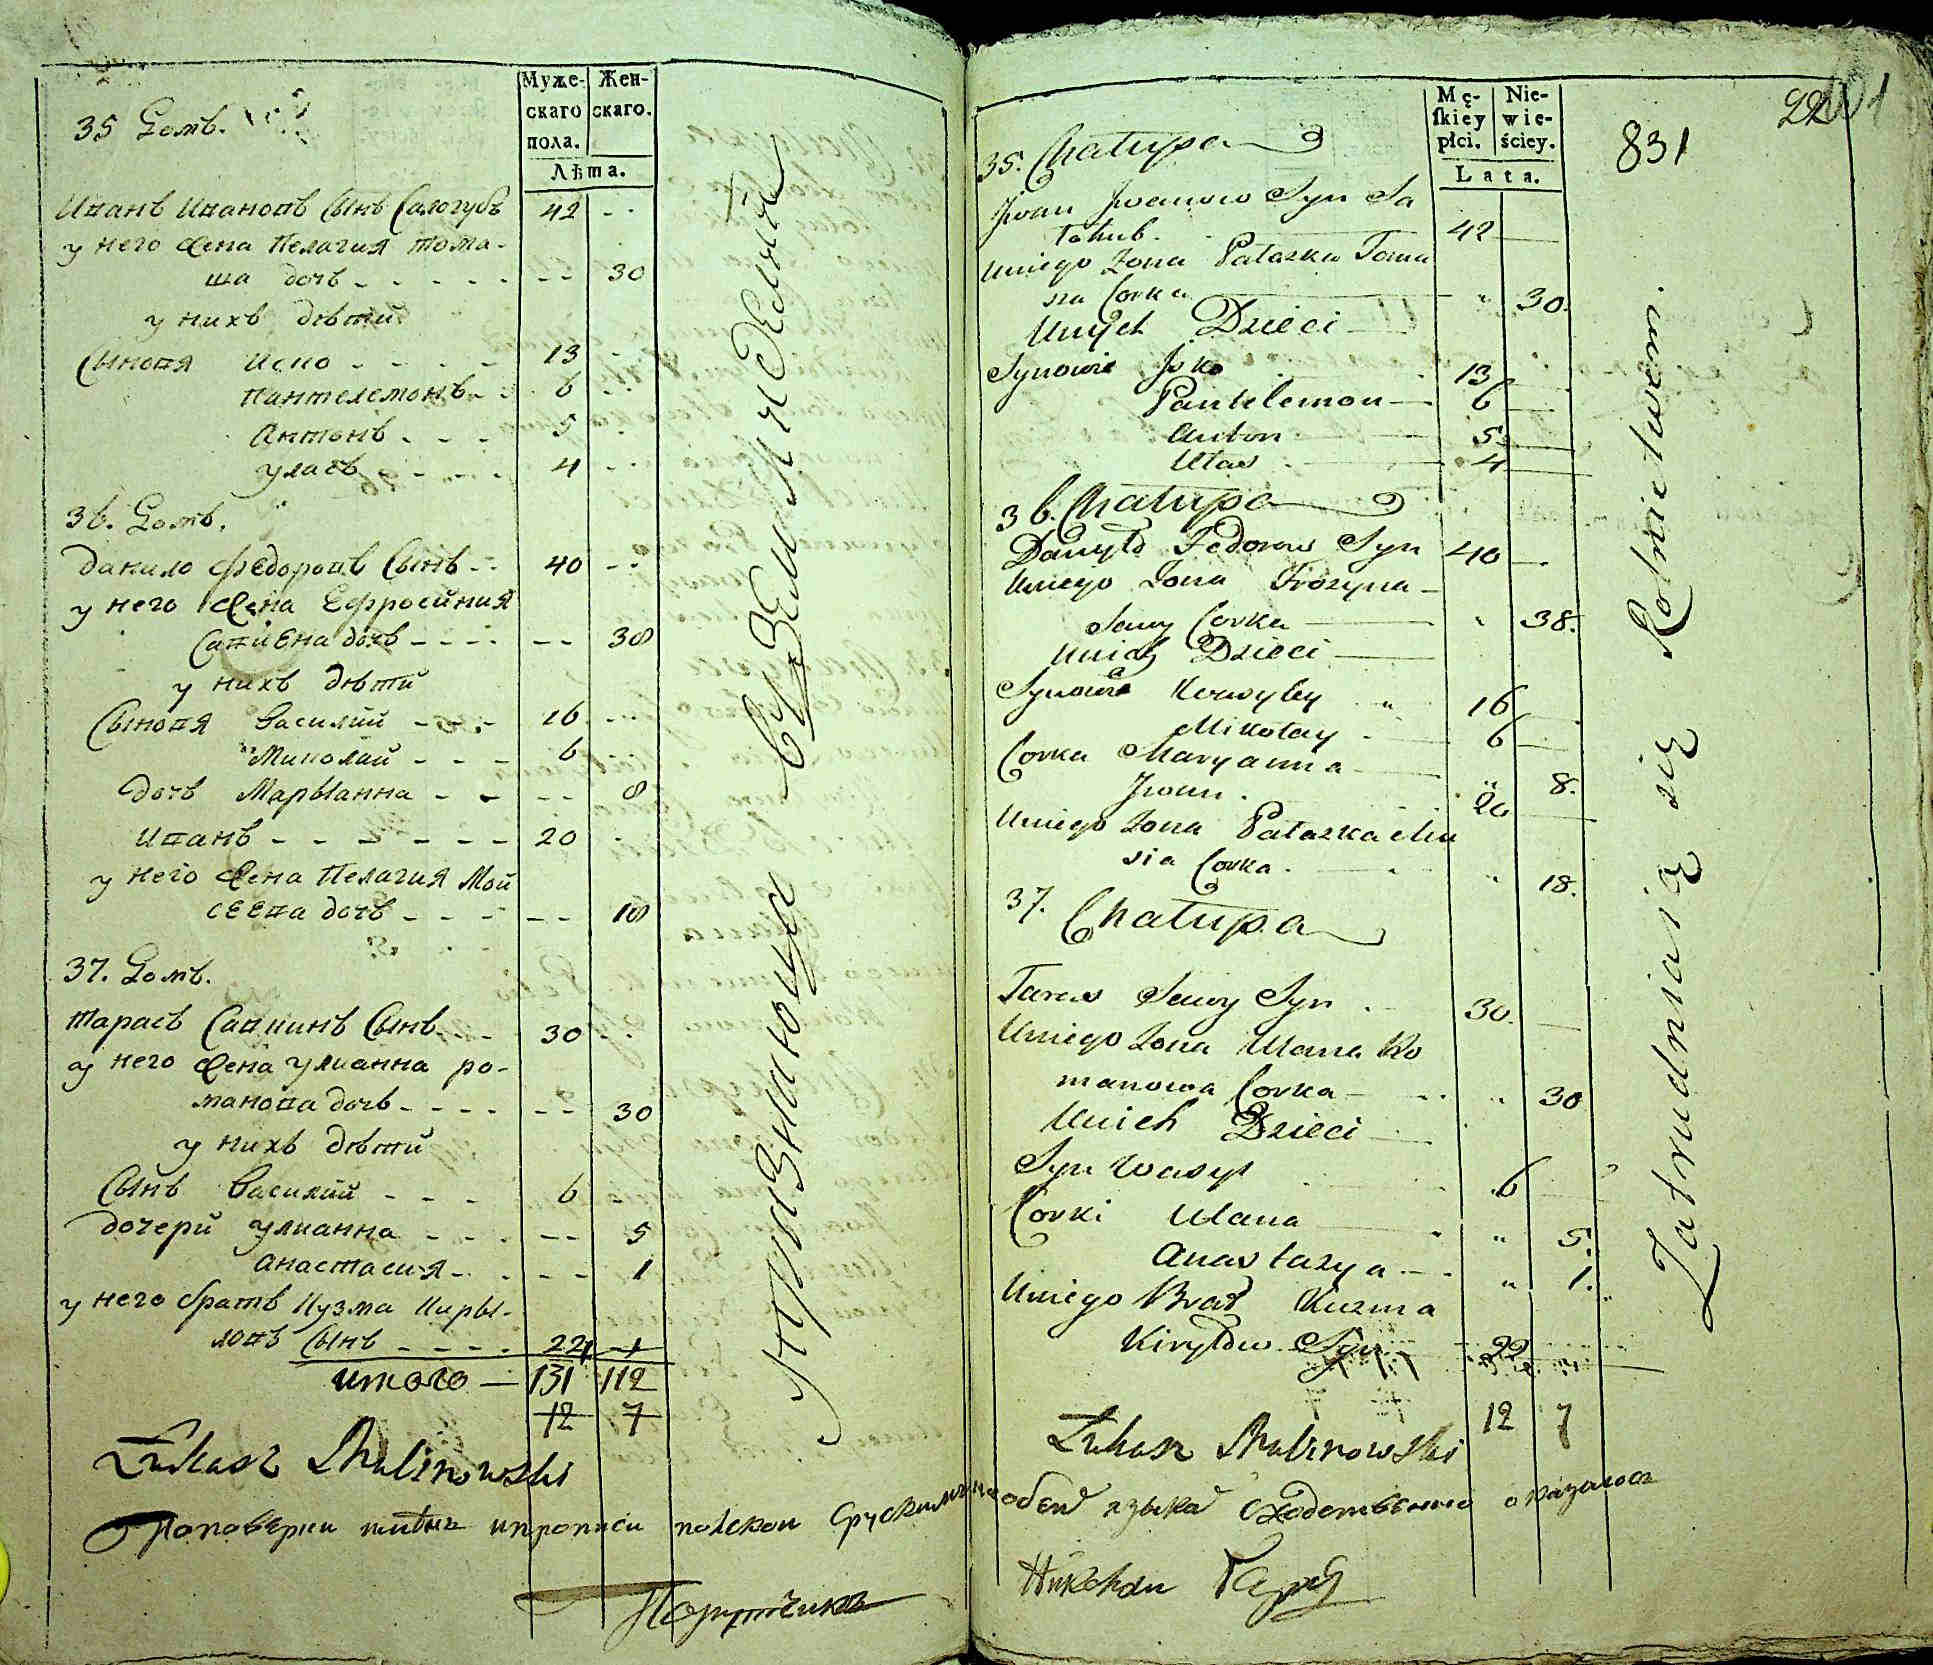 Муже-
скаго
пола.
Жен-
скаго.
Лѣта.
35 Домъ.
Иванъ Ивановъ Сынъ Сологубъ 42
у него Жена Пелагия тома-
ша дочь 30
у нихъ дѣти
Сыновя Иско 13
Пантелемонъ 6
Антонъ 5
уласъ 4
36. Домъ.
данило Федоровъ Сынъ 40
у него Жена Ефросиния
Савиена дочь 38
у нихъ дѣти
Сыновя Василий 16
Миколай 6
дочь Марыанна 8
Иванъ 20
у него Жена Пелагия Мой
сеева дочь 18
37. Домъ.
Тарасъ Савинъ Сынъ 30
у него Жена улианна ро-
манова дочь 30
у нихъ дѣти
Сынъ Василий 6
дочери улианна 5
анастасия 1
у него братъ Кузма Киры-
ловъ Сынъ 22
итого 131 112
12 7
Łukasz Malinowski
Упразнаюца вузЕмлЕдЕлия
Mę-
skiey
płci.
Nie-
wie-
ściey.
Lata.
831
35. Chałupa
Jwan Jwanow Syn Sa
łohub 42
Uniego Zona Pałazka Toma
sza Corka 30.
Unych Dzieci
Synowie Jsko 13
Pantelemon 6
Anton 5
Ułas 4
36. Chałupa
Danyło Fedorow Syn 40
Uniego Zona Frozyna
Sawy Corka 38.
Unich Dzieci
Synowie 16
Mikołay 6
Corka Maryanna 8.
Jwan 20
Uniego Zona Pałazka Mu
sia Corka 18.
37. Chałupa
Taras Sawy Syn 30.
Uniego Zona Ulana Ro
manowa Corka 30
Unich Dzieci
Syn Wasyl 6
Corki Ulana 5.
Anastazya 1.
Uniego Brat Kuzma
Kiryłow Syn 22
12 7
Łukasz Malinowski
Zatrudniaią się Rolnictwem.
Поповерки прописи полскои Срускимъ обеи языка сходственна оказалось
Порутчикъ